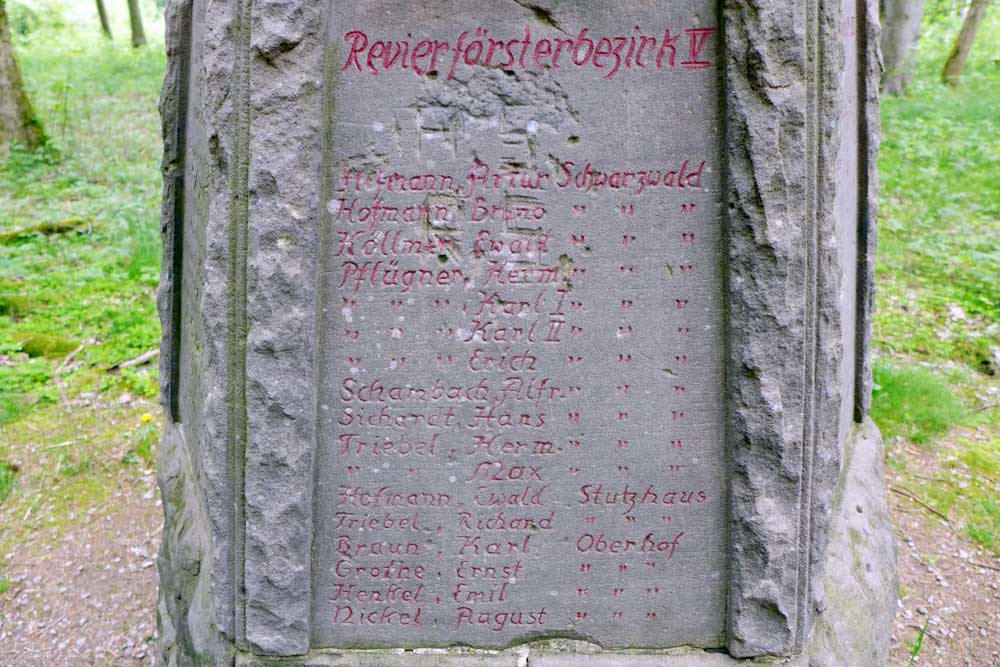 Revierförsterbezirk V
Hofmann, Artur Schwarzwald
Hofmann, Bruno " " "
Köllmer, Ewald " " "
Pflügner, Herm. " " "
" " " Karl I " " "
" " " Karl II " " "
" " " Erich " " "
Schambach, Alfr. " " "
Sichardt, Hans " " "
Triebel, Herm. " " "
" " Max " " "
Hofmann, Ewald Stutzhaus
Triebel, Richard " " "
Braun, Karl Oberhof
Grothe, Ernst " " "
Henkel, Emil " " "
Nickel, August " " "